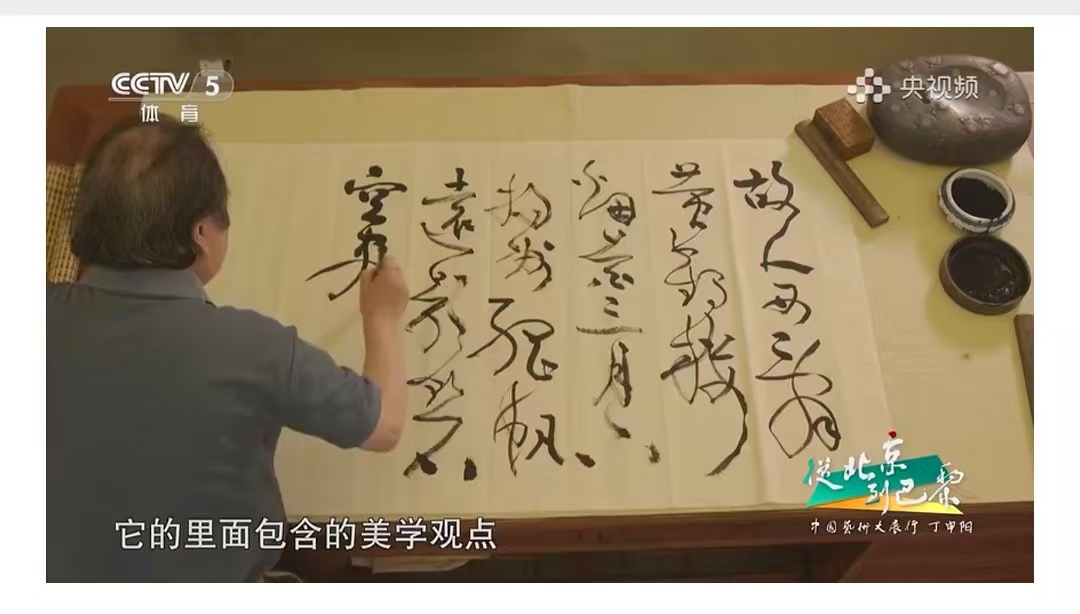 CCTV 5
体育
央视频
故人西辭
黄鶴樓
烟花三月下
揚州孤帆
遠影碧
空
從北京
到巴黎
中国藝術大展行 丁申阳
它的里面包含的美学观点